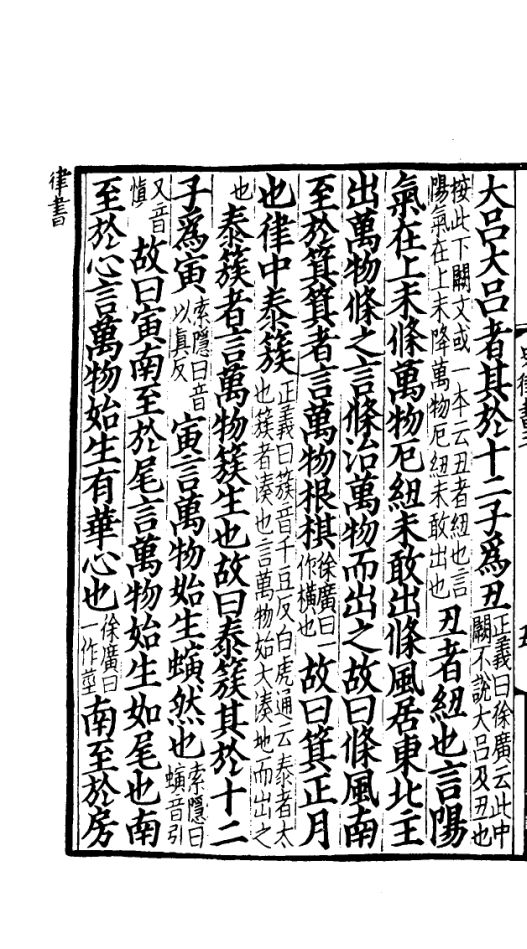 大呂大呂者其於十二子爲丑正義曰徐廣云此中闕不說大呂及丑也
按此下闕文或一本云丑者紐也言陽氣在上未降萬物厄紐未敢出也丑者紐也言陽
氣在上未條萬物厄紐未敢出條風居東北主
出萬物條之言條治萬物而出之故曰條風南
至於箕箕者言萬物根棋徐廣曰一作橫也故曰箕正月
也律中泰簇正義曰簇音千豆反白虎通云泰者太也簇者湊也言萬物始大湊地而出之
也泰簇者言萬物簇生也故曰泰簇其於十二
子爲寅索隱曰音以真反寅言萬物始生螾然也索隱曰螾音引
又音慎故曰寅南至於尾言萬物始生如尾也南
至於心言萬物始生有華心也徐廣曰一作莖南至於房
律書